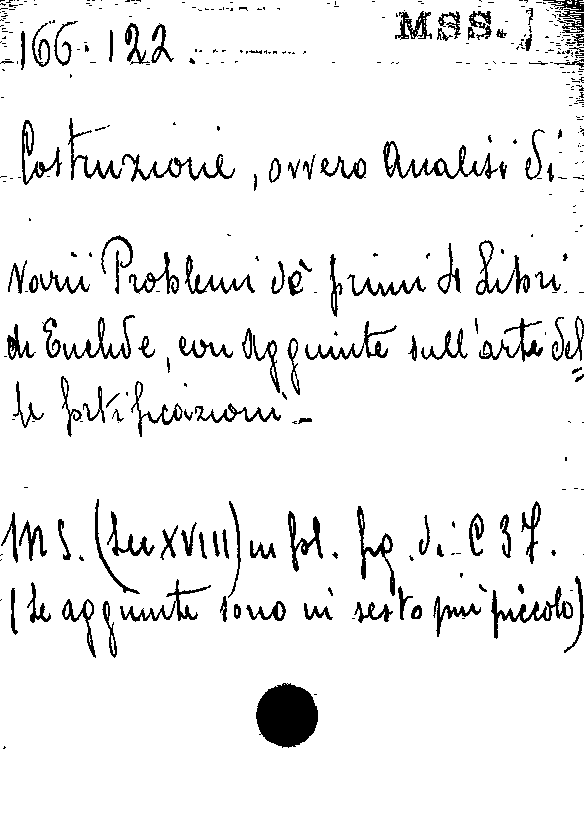 166.122. MSS.
Costruzione, ovvero Analisi di
varii Problemi de' primi 4 Libri
di Euclide, con Aggiunte sull'arte del=
le fortificazioni -
MS. (Sec XVIII) in fol. fig. di C 37.
(Le aggiunte sono in sesto più piccolo)